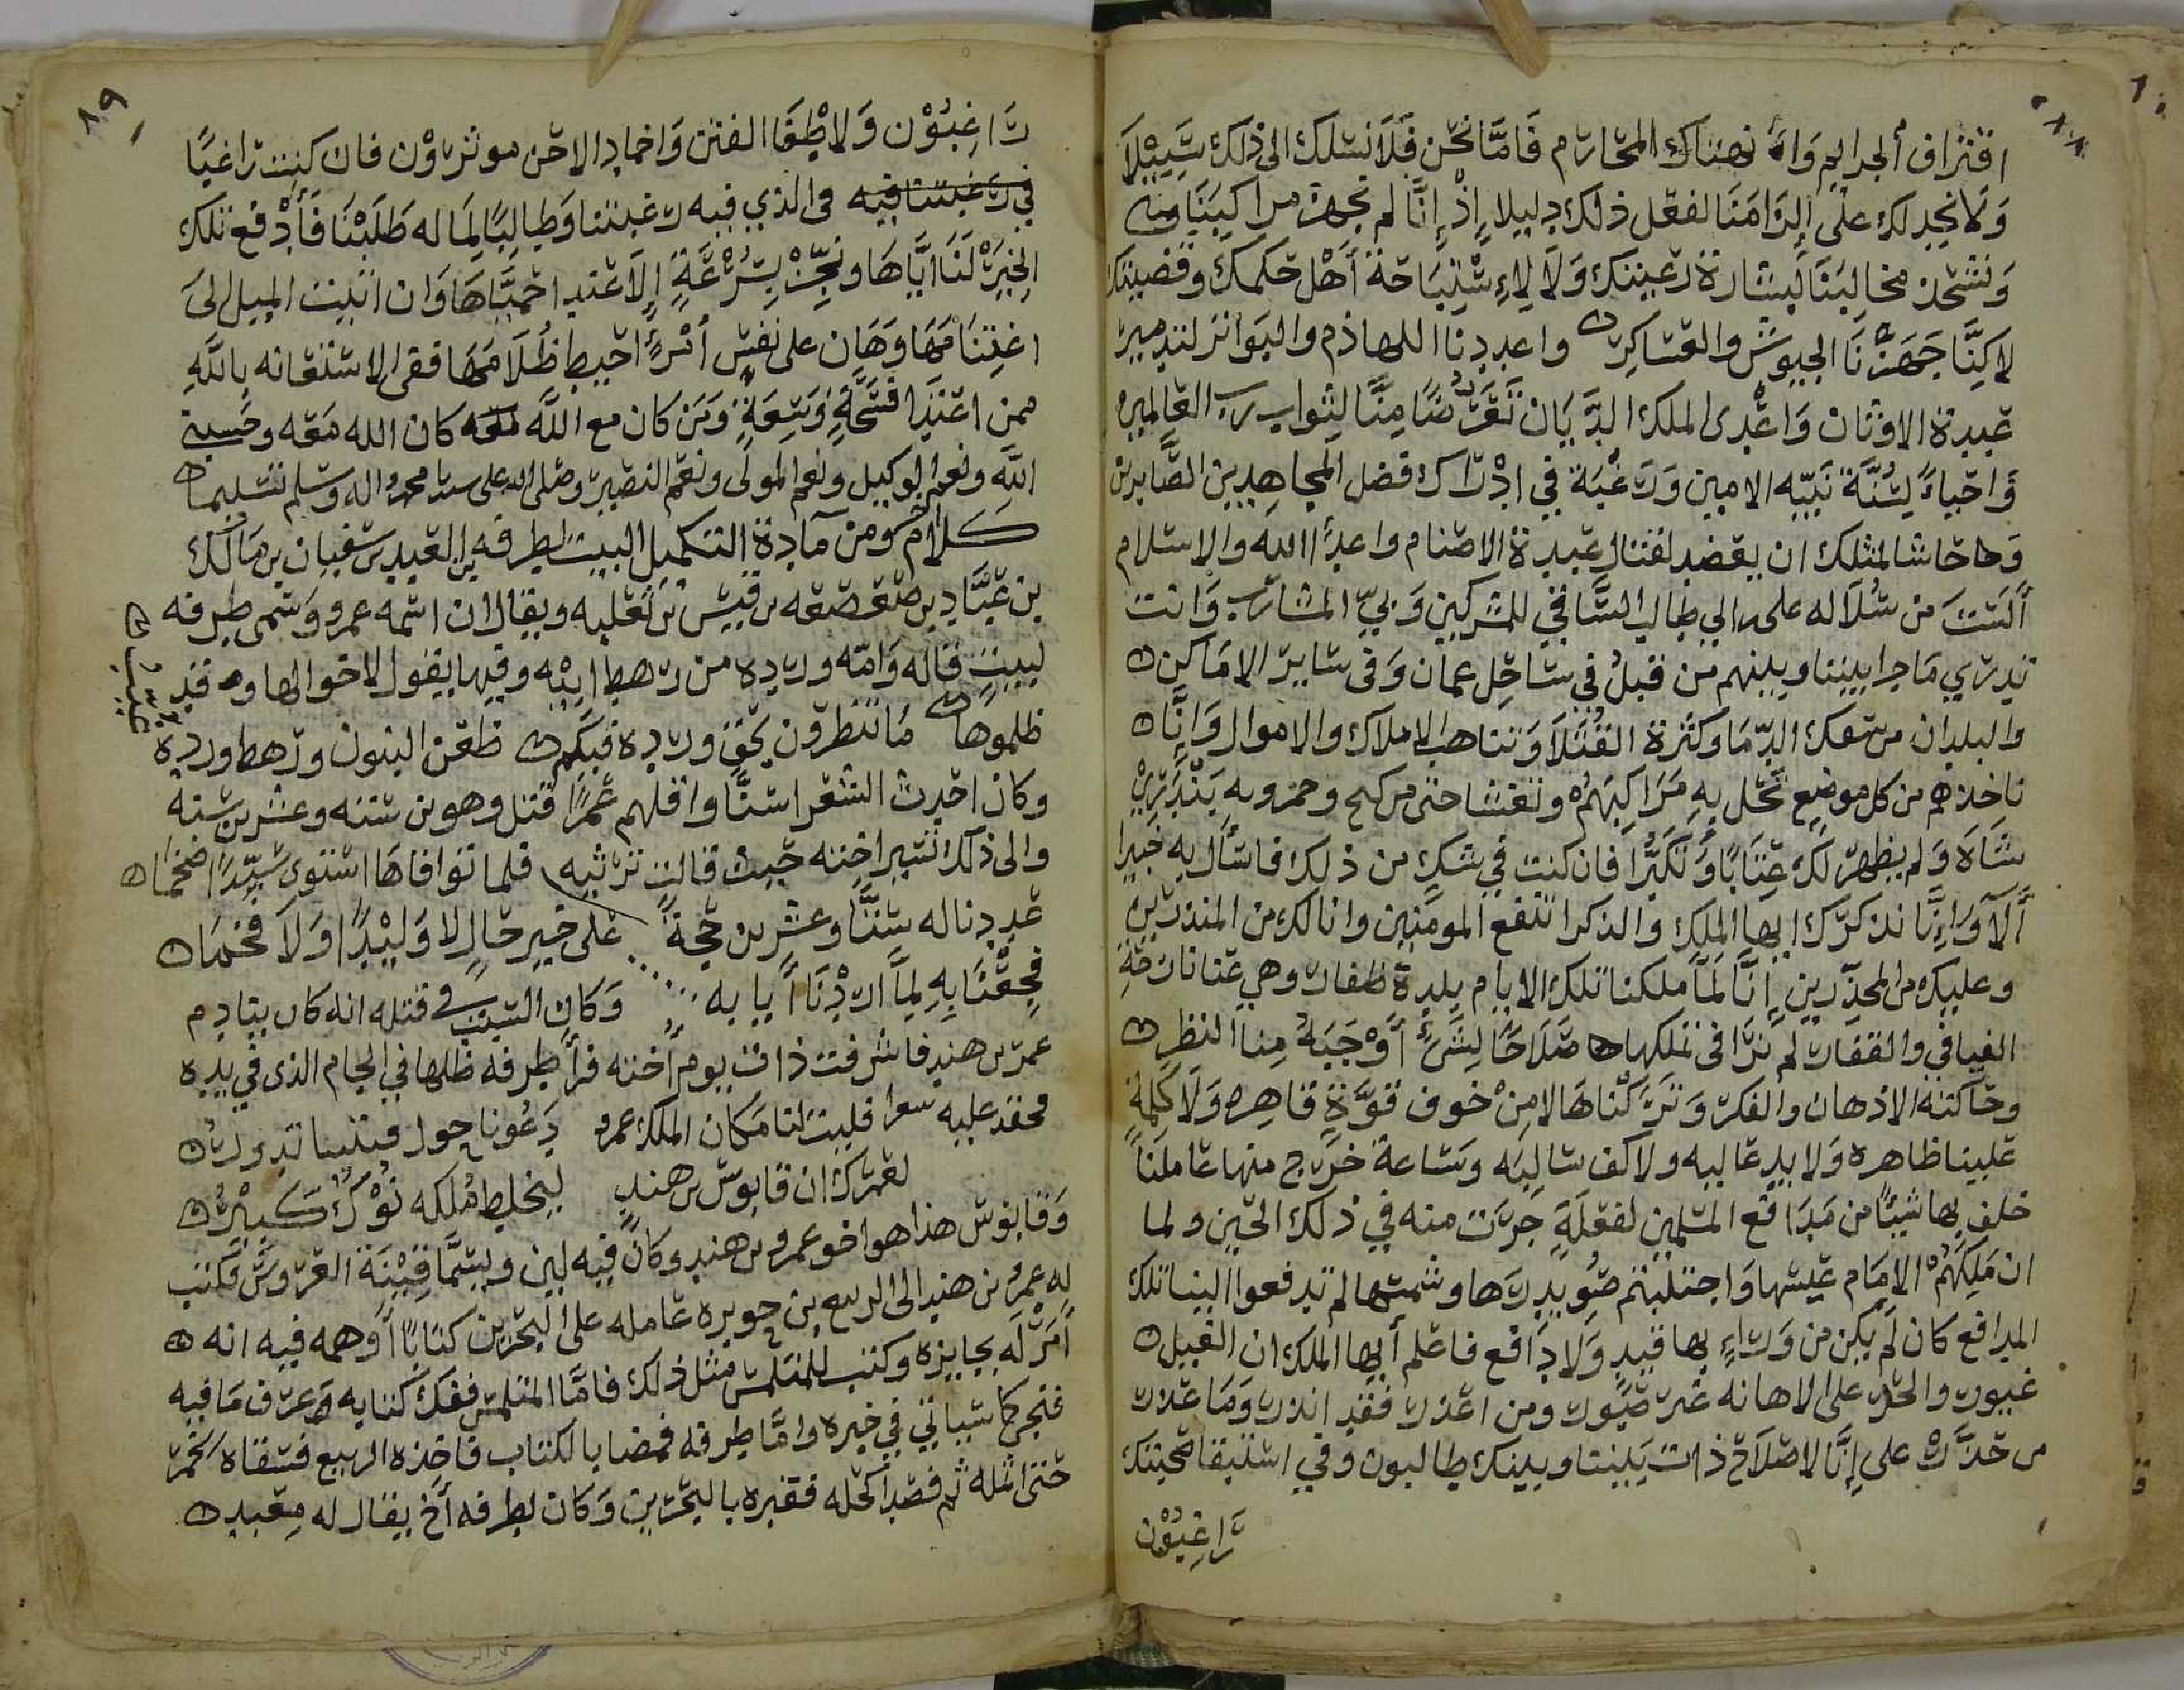 ٨٨
اقتراف الجرايم وانتهاك المحارم فَامَّا نحن فَلَا نسلك الى ذلك سَبِيْلًا
وَلا نجد لك على الزامنا لفعل ذلك دليلا إِذْ إِنَّا لم نجهز مراكبنا
وَنشحذ مخالبنا لِبشارة رعيتك وَلا لإِسْتِبَاحة أهل حكمك وقضيتك
لاكنَّا جَهَّزْنَا الجيوش والعساكر واعددنا اللهاذم والبواتر لتدمير
عبدة الاوثان وَاعْدى الملك الدَّيَّان تَعَرُّضًا مِنَّا لِثواب رب العالمين
وَاحياءً لِسُنَّة نَبيّه الامين وَرَغْبَة في ادْرَاك فضل المجاهدين الصَّابرين
وَحاشا لمثلك ان يغضب لقتال عبدة الاصنام واعداء الله والاسلام
أَلَسْتَ من سُلَاله على ابي طالب السَّاقي للمشركين وَبيّ المشارب وَانت
تدري مَا جرا بيننا وبينهم من قبلُ في سَاحِل عمان وَفى سَاير الامَاكن
والبلدان من سفك الدّمَا وكثرة القُتَلَا وَتناهب الاملاك والاموال وَإِنَّا
ناخذهم من كل موضع تحل به مَرَاكِبَهُمْ ونغشا حتى من كج وحمزوبه بَنْدَرِيْ
شَاه وَلم يظهر لك عِتَابًا وَنَكِيْرًا فان كنت في شك من ذلك فاسأل به خبيرا
أَلَآ وَاِنَّا نذكرّك ايها الملك والذكرا تنفع المومنين وانا لك من المنذرين
وعليك من المحذّرين إِنَّا لَمَّا ملكنا تلك الايام بلدة ظفار وهي عنا نازحة
الفيافي والقفار لم نرَا في تملكها صَلاحًا لِشَئٍ أَوْجَبَهُ مِنا النظر
وحاكته الاذهان والفكر وَتَرَكْنَاهَا لا مِنْ خوف قوَّةٍ قاهره وَلا كلمةٍ
علينا ظاهره وَلا يد غالبه ولا كف سالبه وَساعة خَرَج منها عاملنا
خلف بها شيئًا من مَدَافع المسلمين لغفلةٍ جرت منه في ذلك الحين ولما
ان مَلِكَهُمْ الامام عيسها وَاجتلبتم ضوء بدرَها وشمسها لم تدفعوا الينا تلك
المدافع كان لَمْ يكن من وَرَاءٍ بها قيد وَلا دَافع فاعلم أيها الملك ان القبيل
غيور والحرّ على الاهانه غير صَبُور ومن اعذر فقد انذر وَمَا غدر
من حذّرك على إِنَّا لاصْلَاح ذات بَيننا وبينك طالبون وفي استبقا صحبتك
رَاغِبُوْن
٨٩
رَاغِبُوْن وَلاطْفَا الفتن وَاخماد الاحن موثرون فان كنت راغبًا
في رغبتنا فيه فى الذي فيه رغبتنا وَطالبًا لِمَا له طَلَبْنَا فَأَدْفع تلك
الخِيَرْ لَنَا ايَّاهَا ونجّزْ بِسُرْعَةٍ إِلَا عند احمبَّاهَا وَان ابيت الميل الى
اغتنامَهَا وَهَان على نفس أمرءٍ احيط ظُلَامَهَا ففى الاستغاثه بِاللَّهِ
ممن اعتدا فُسَحَةٍ وَسِعَةٍ وَمَن كان مع اللَّه كان الله مَعه وحَسبي
اللَّه ونعم الوكيل ونعم المولى ونعم النصير وصلى الله على سيدنا محمد واله وسلم تسليما
كلامٌ وَمن مآدة التكميل البيت لطرفه بن العبد بن سفيان بن مالك
بن عبَّاد بن صعصعه بن قيس بن ثعلبه ويقال ان اسمه عمرو وَسمى طرفه
لبيتٍ قاله وَامّه ورده من رهط ابيْه وفيها يقول لاخوالها وقد
ظلموها مَا تنظرون بحَقِ ورده فيكم ظعن البنون ورهط ورده
غيب
وكان احدث الشعرا سنًّا واقلهم عُمرًا قتل وهو بن ستة وعشرين سنه
والى ذلك تشير اخته حيث قالت ترثيه فلما توافاها استوى سَيّدًا ضخما
عددنا له ستَّا وعشرين حجةً على خير حالٍ لا وَلِيْدًا وَلا فخما
فجِعْنَا بِهِ لِمَا ارْدْنَا أيابه وَكان السَّبب في قتله انه كان ينادم
عمر بن هند فاشرفت ذات يوم أخته فرأ طرفه ظلها في الجام الذى في يده
محقد عليه فليت لنا مَكان الملك عمرو دَغُونا حول قبتنا تدور
لعمرك ان قابوس بن هند ليخلط مُلكه نُوْكٌ كَبِيْرُ
وَقابوس هذا هو اخو عمرو بن هند وكان فيه لين ويسمَّا قَيْنَة العروسّ فكتب
له عمرُ بن هند الى الربيع بن حوبره عامله على البحرين كتابًا أَوهمه فيه انه
أَمَرْ لَه بجايزه وكتب للمتلمس مثل ذلك فامَّا المتلمس ففك كتابه وَعرف مَا فيه
فنجى كما سياتي في خيره وامَّا طرفه فمضا بالكتاب فاخذه الربيع فسقاه الخمر
حتى اثله ثم فصد أكحله فقبره بالبحرين وَكان لطرفه أخ يقال له معبد